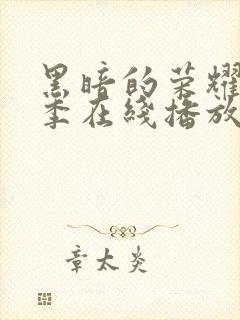 黑暗的荣耀
季在綫播放
章太炎